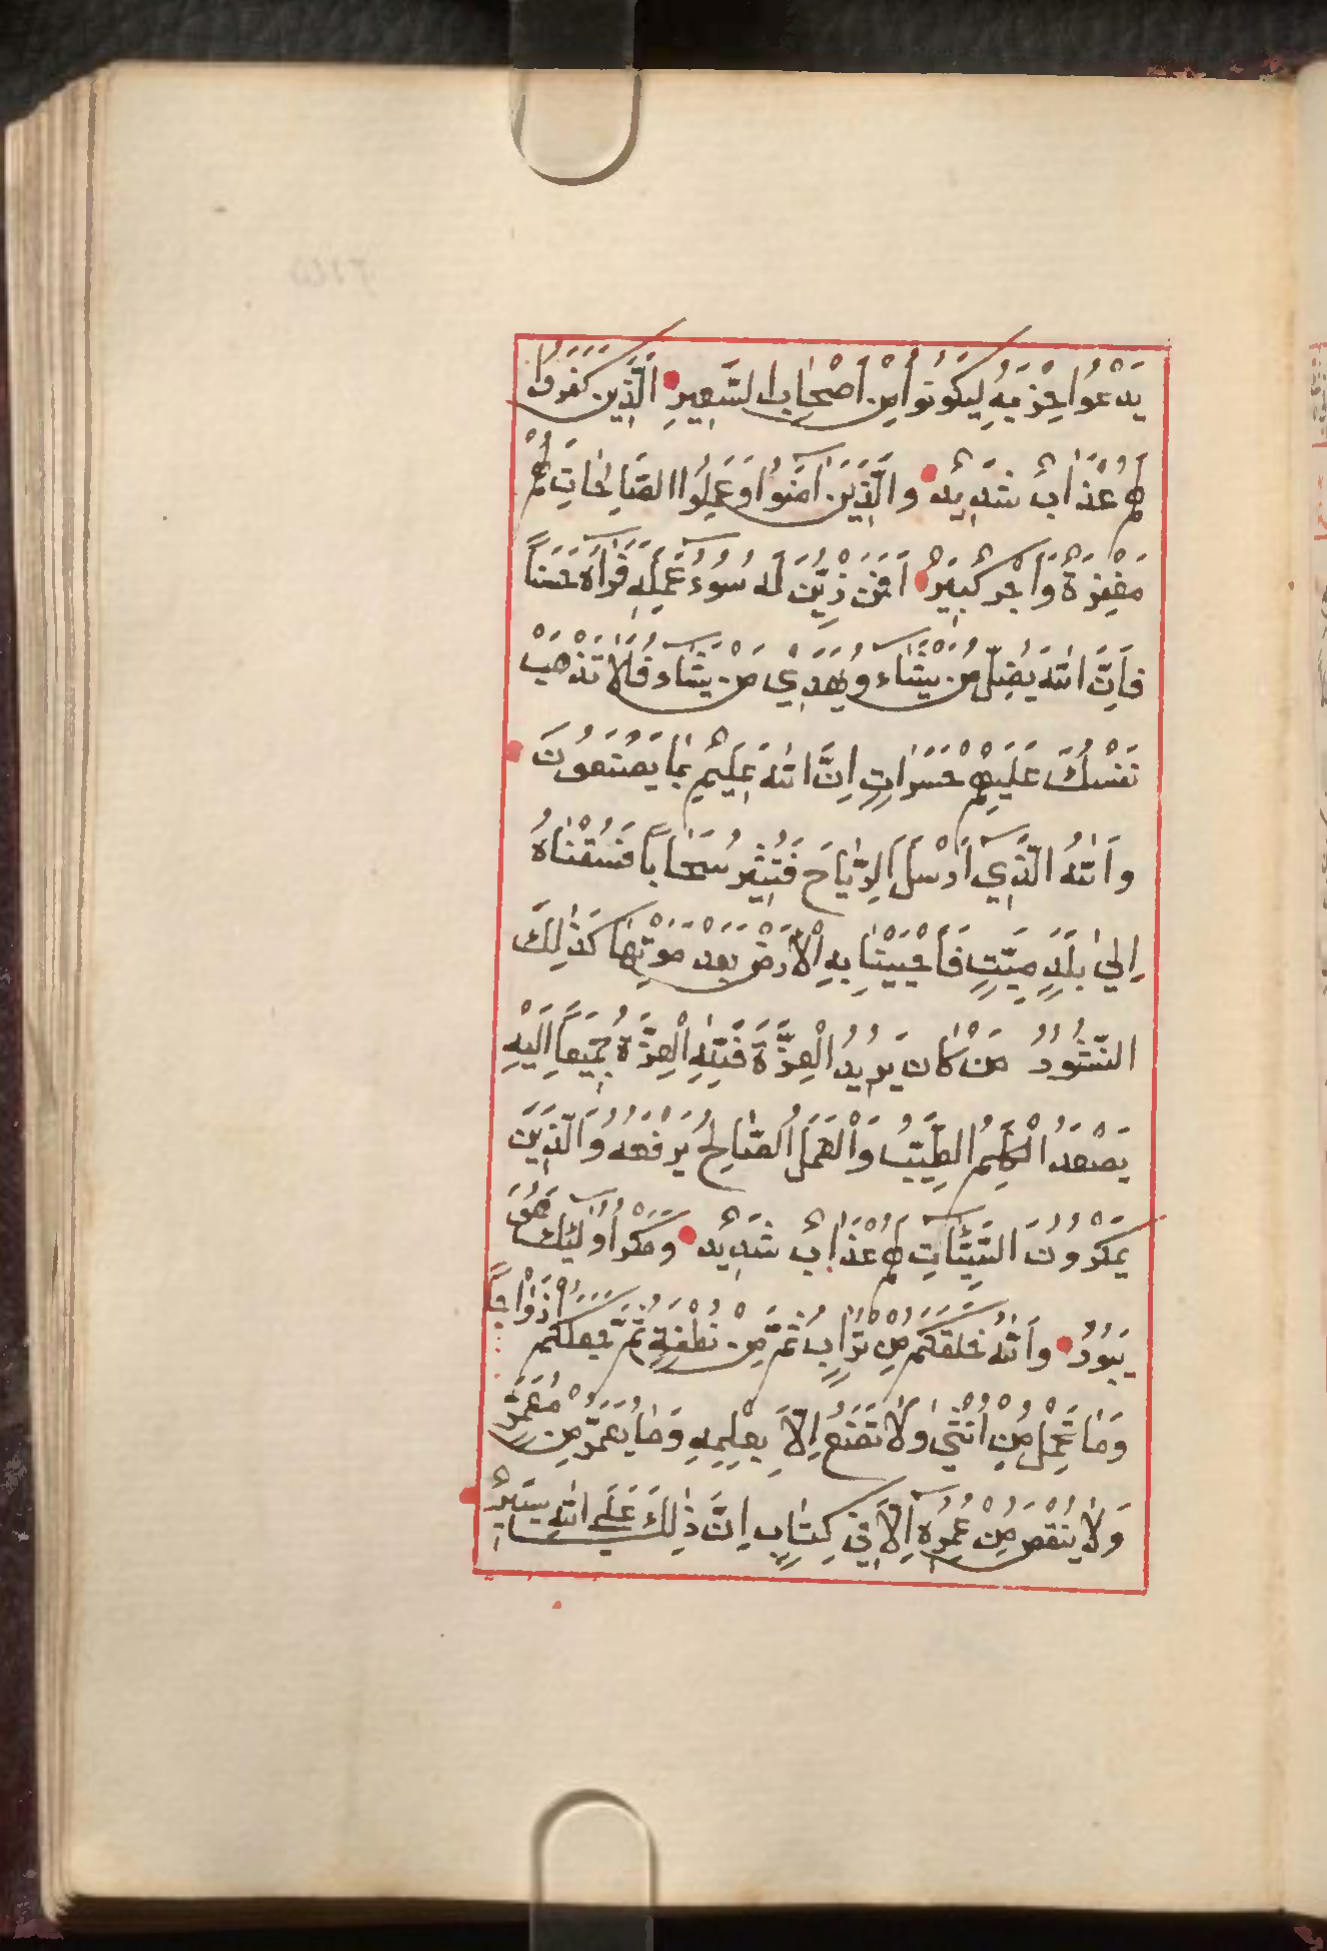 يَدْعُوا حِزْبَهُ لِيَكُونُوا مِنْ اَصْحٰابِ السَّعِيرِ الَّذِينَ كَفَرُوا
لَهُمْ عَذٰابٌ شَدِيدٌ وَالَّذِينَ اٰمَنُوا وَعَمِلُوا الصَّالِحٰاتِ لَهُمْ
مَغْفِرَةٌ وَاَجْرٌ كَبِيرٌ اَفَمَنْ زُيِّنَ لَهُ سُوٓءُ عَمَلِهِ فَرَاٰهُ حَسَناً
فَاِنَّ اللّٰهَ يُضِلُّ مَنْ يَشٰٓاءُ وَيَهْدِي مَنْ يَشٰٓاءُ فَلاٰ تَذْهَبْ
نَفْسُكَ عَلَيْهِمْ حَسَرٰاتٍ اِنَّ اللّٰهَ عَلِيمٌ بِمٰا يَصْنَعُونَ
وَاللّٰهُ الَّذِٓي اَرْسَلَ الرِّيٰاحَ فَتُثِيرُ سَحٰاباً فَسُقْنٰاهُ
اِلىٰ بَلَدٍ مَيِّتٍ فَاَحْيَيْنٰا بِهِ الْاَرْضَ بَعْدَ مَوْتِهٰا كَذٰلِكَ
النُّشُورُ مَنْ كٰانَ يُرِيدُ الْعِزَّةَ فَلِلّٰهِ الْعِزَّةُ جَمِيعاً اِلَيْهِ
يَصْعَدُ الْكَلِمُ الطَّيِّبُ وَالْعَمَلُ الصّٰالِحُ يَرْفَعُهُ وَالَّذِينَ
يَمْكُرُونَ السَّيِّئٰاتِ لَهُمْ عَذٰابٌ شَدِيدٌ وَمَكْرُ اُولٰٓئِكَ هُوَ
يَبُورُ وَاللّٰهُ خَلَقَكُمْ مِنْ تُرٰابٍ ثُمَّ مِنْ نُطْفَةٍ ثُمَّ جَعَلَكُمْ اَزْوٰاجاً
وَمٰا تَحْمِلُ مِنْ اُنْثىٰ وَلاٰ تَضَعُ اِلاّٰ بِعِلْمِهِ وَمٰا يُعَمَّرُ مِنْ مُعَمَّرٍ
وَلاٰ يُنْقَصُ مِنْ عُمُرِهِٓ اِلاّٰ فِي كِتٰابٍ اِنَّ ذٰلِكَ عَلَى اللّٰهِ يَسِيرٌ